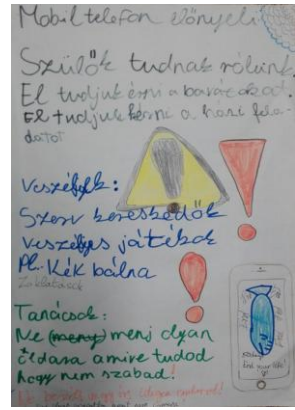 Mobil telefon előnyei:
Szülők tudnak rólunk
El tudjuk érni a barátokat.
El tudjuk kérni a házi fela-
datot
Veszélyek:
Szerv kereskedők
veszélyes játékok
Pl.- Kék bálna
Zaklatások
Tanácsok:
Ne (meny) menj olyan
oldara amire tudod
hogy nem szabad!
Ne beszélj